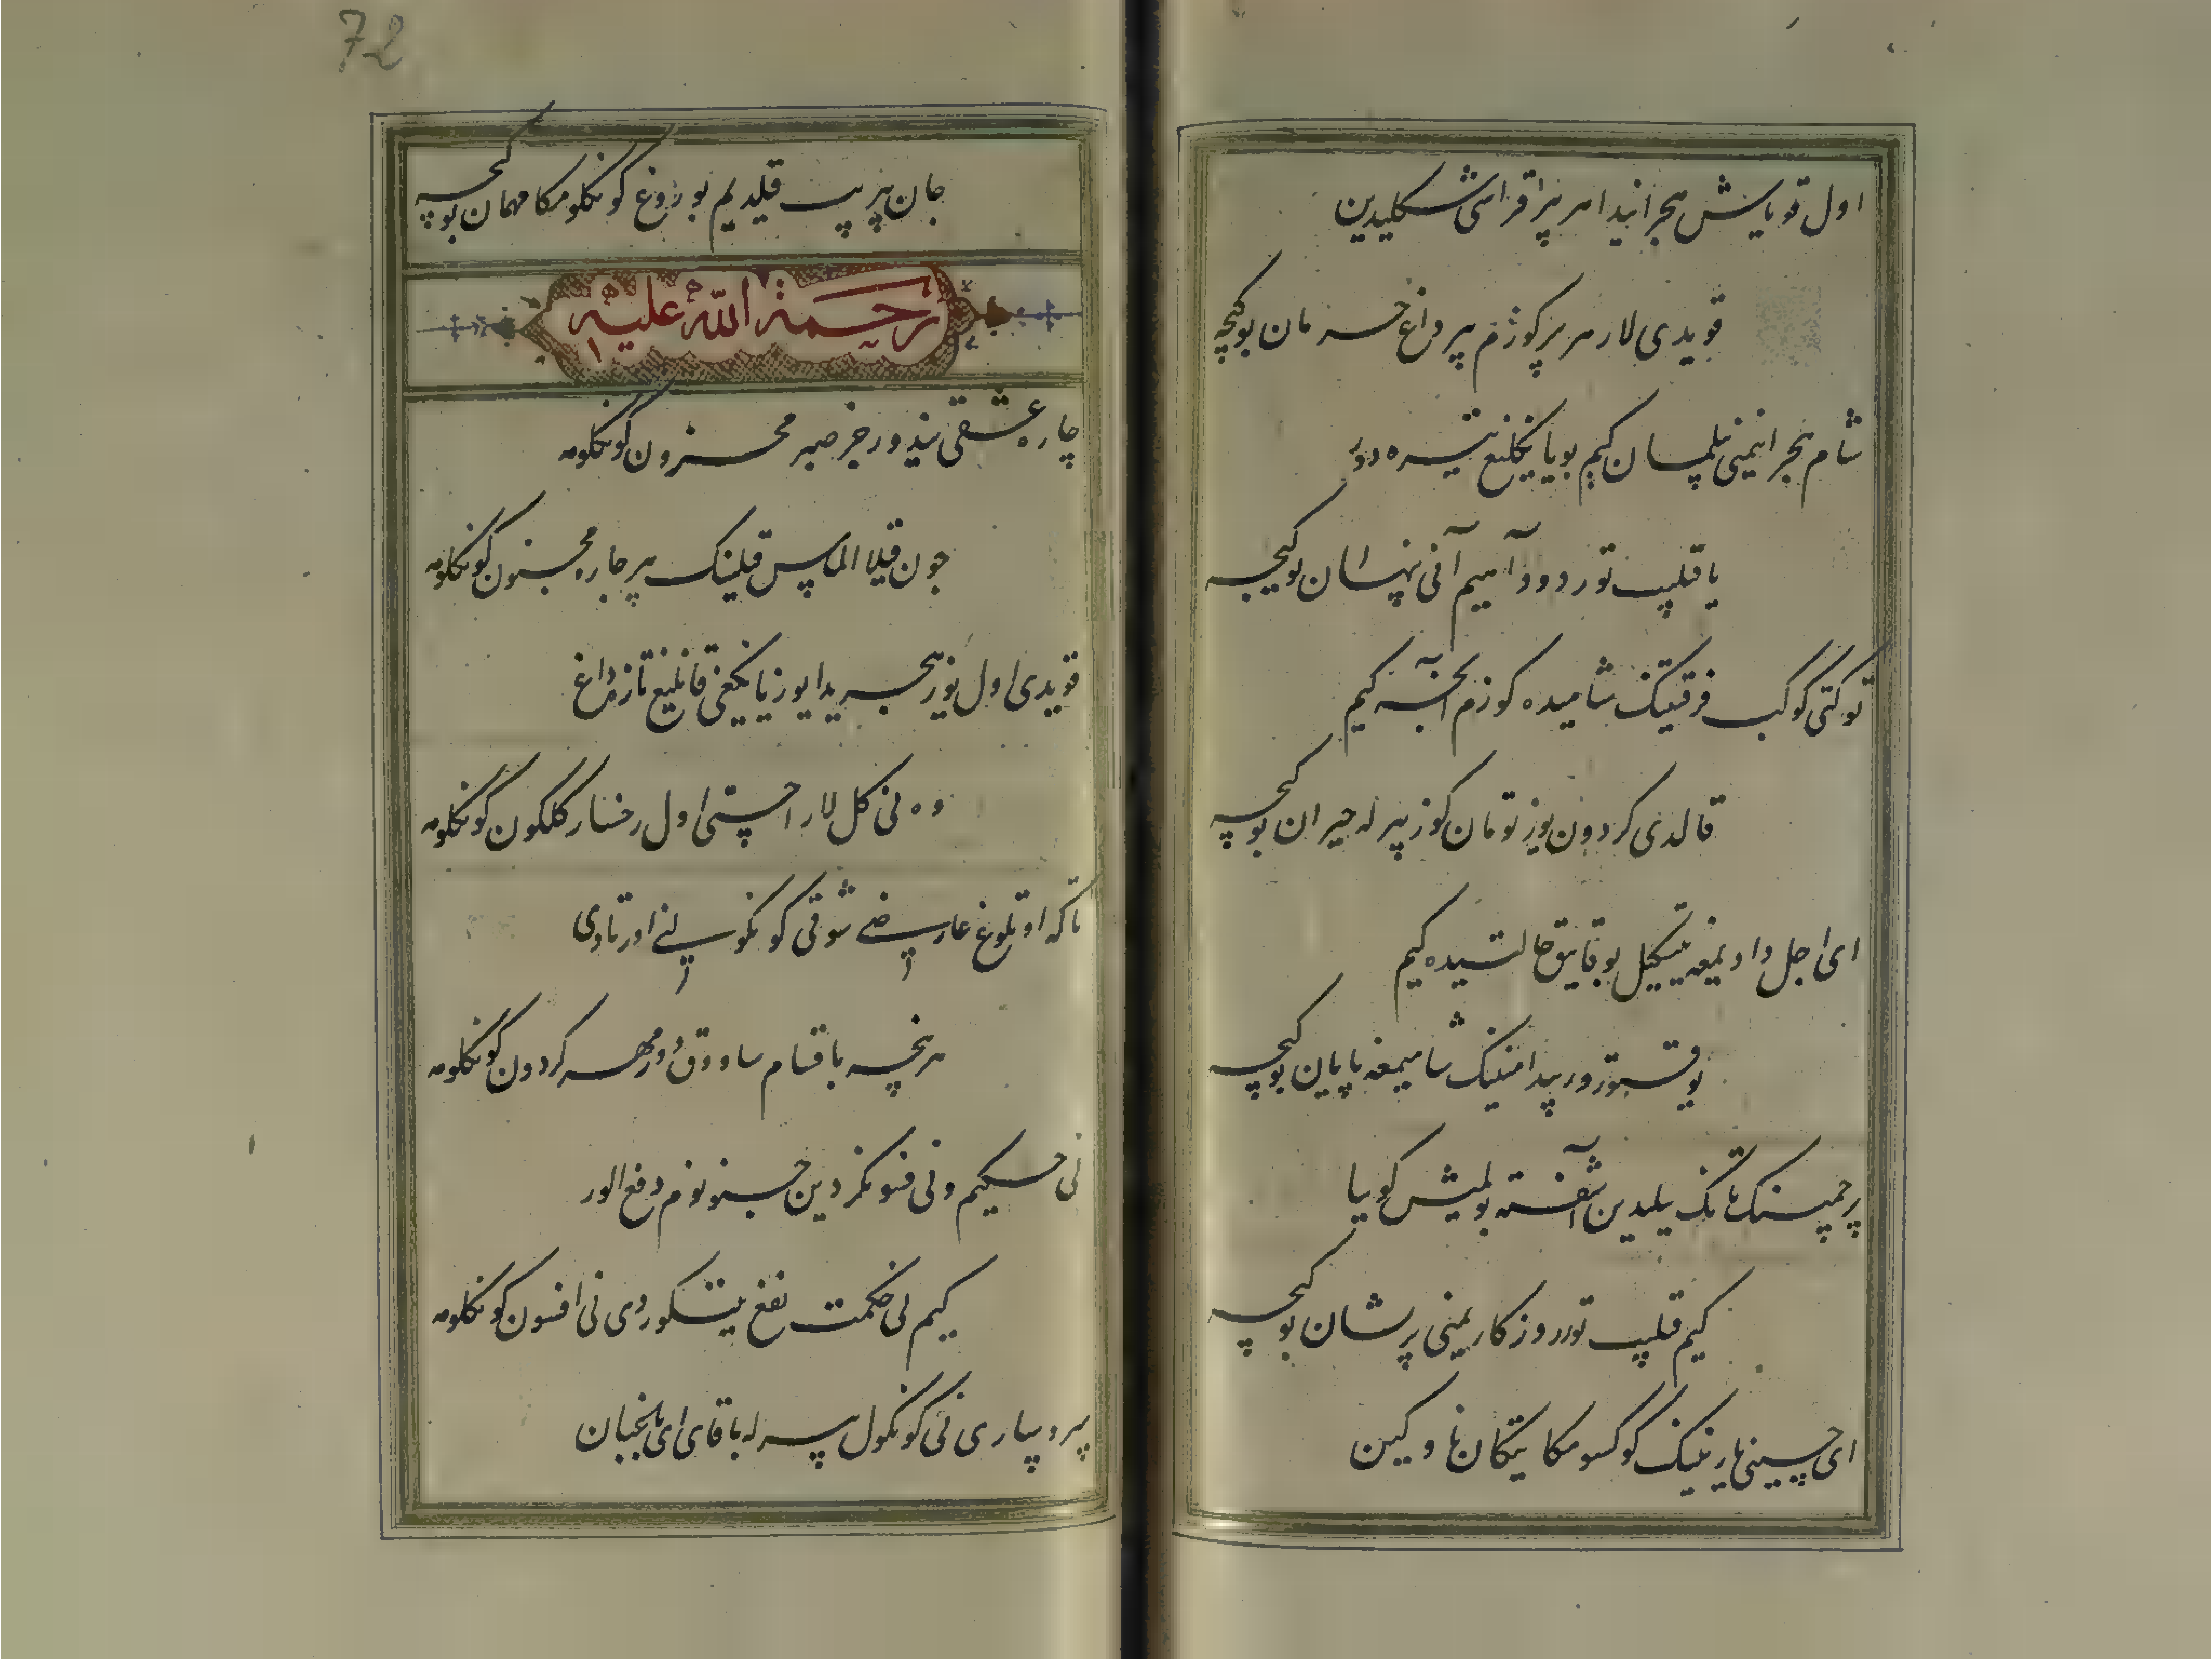 اول قویاش هجرانیدا هر بیر اقر اشکلیدین
قویدی لار هر بیر کوزم بیر داغ حرمان بو کیچه
شام هجرانیمنی بیلمسان کیم بو یانکلیغ تیره دور
یا قیلیب تور دود آهیم آنی پنهان بو کیچه
توکتی کوکب فرقتینک شامیده کوزم انجه کیم
قالدی کردون یوز تومان کوز بیرله حیران بو کیچه
ای اجل دادیمغه یتکیل بو قاتیق حالتیده کیم
یوقتورور پیدا مینینک شامیمغه پایان بو کیچه
پرچمینک تانک ییلیدین آشفته بولمیش کوییا
کیم قیلیب تور روزکاریمنی پریشان بو کیچه
ای حسینی یارنینک کوکسومکا تیکان ناوکین
جان بیریب قیلدیم بوزوغ کونکلومکا مهمان بو کیچه
رحمة الله علیه
چاره عشقی نیدور جز صبر محزون کونکلومه
چون قیلا الماس قیلینک بیر چاره مجنون کونکلومه
قویدی اول یوز هجریدا یوز یانکیغی قانلیغ تازه داغ
وه نی کل لار اچتی اول رخسار کلکون کونکلومه
تا که اوتلوغ عارضی شوقی کونکولنی اورتادی
هر نیچه باقسام ساووق دور مهر کردون کونکلومه
نی حکیم و نی فسونکردین جنونوم دفع الور
کیم نی حکمت نفع یتکوردی نی افسون کونکلومه
بیر و بیاری نی کونکول بیرله باقای ای باغبان